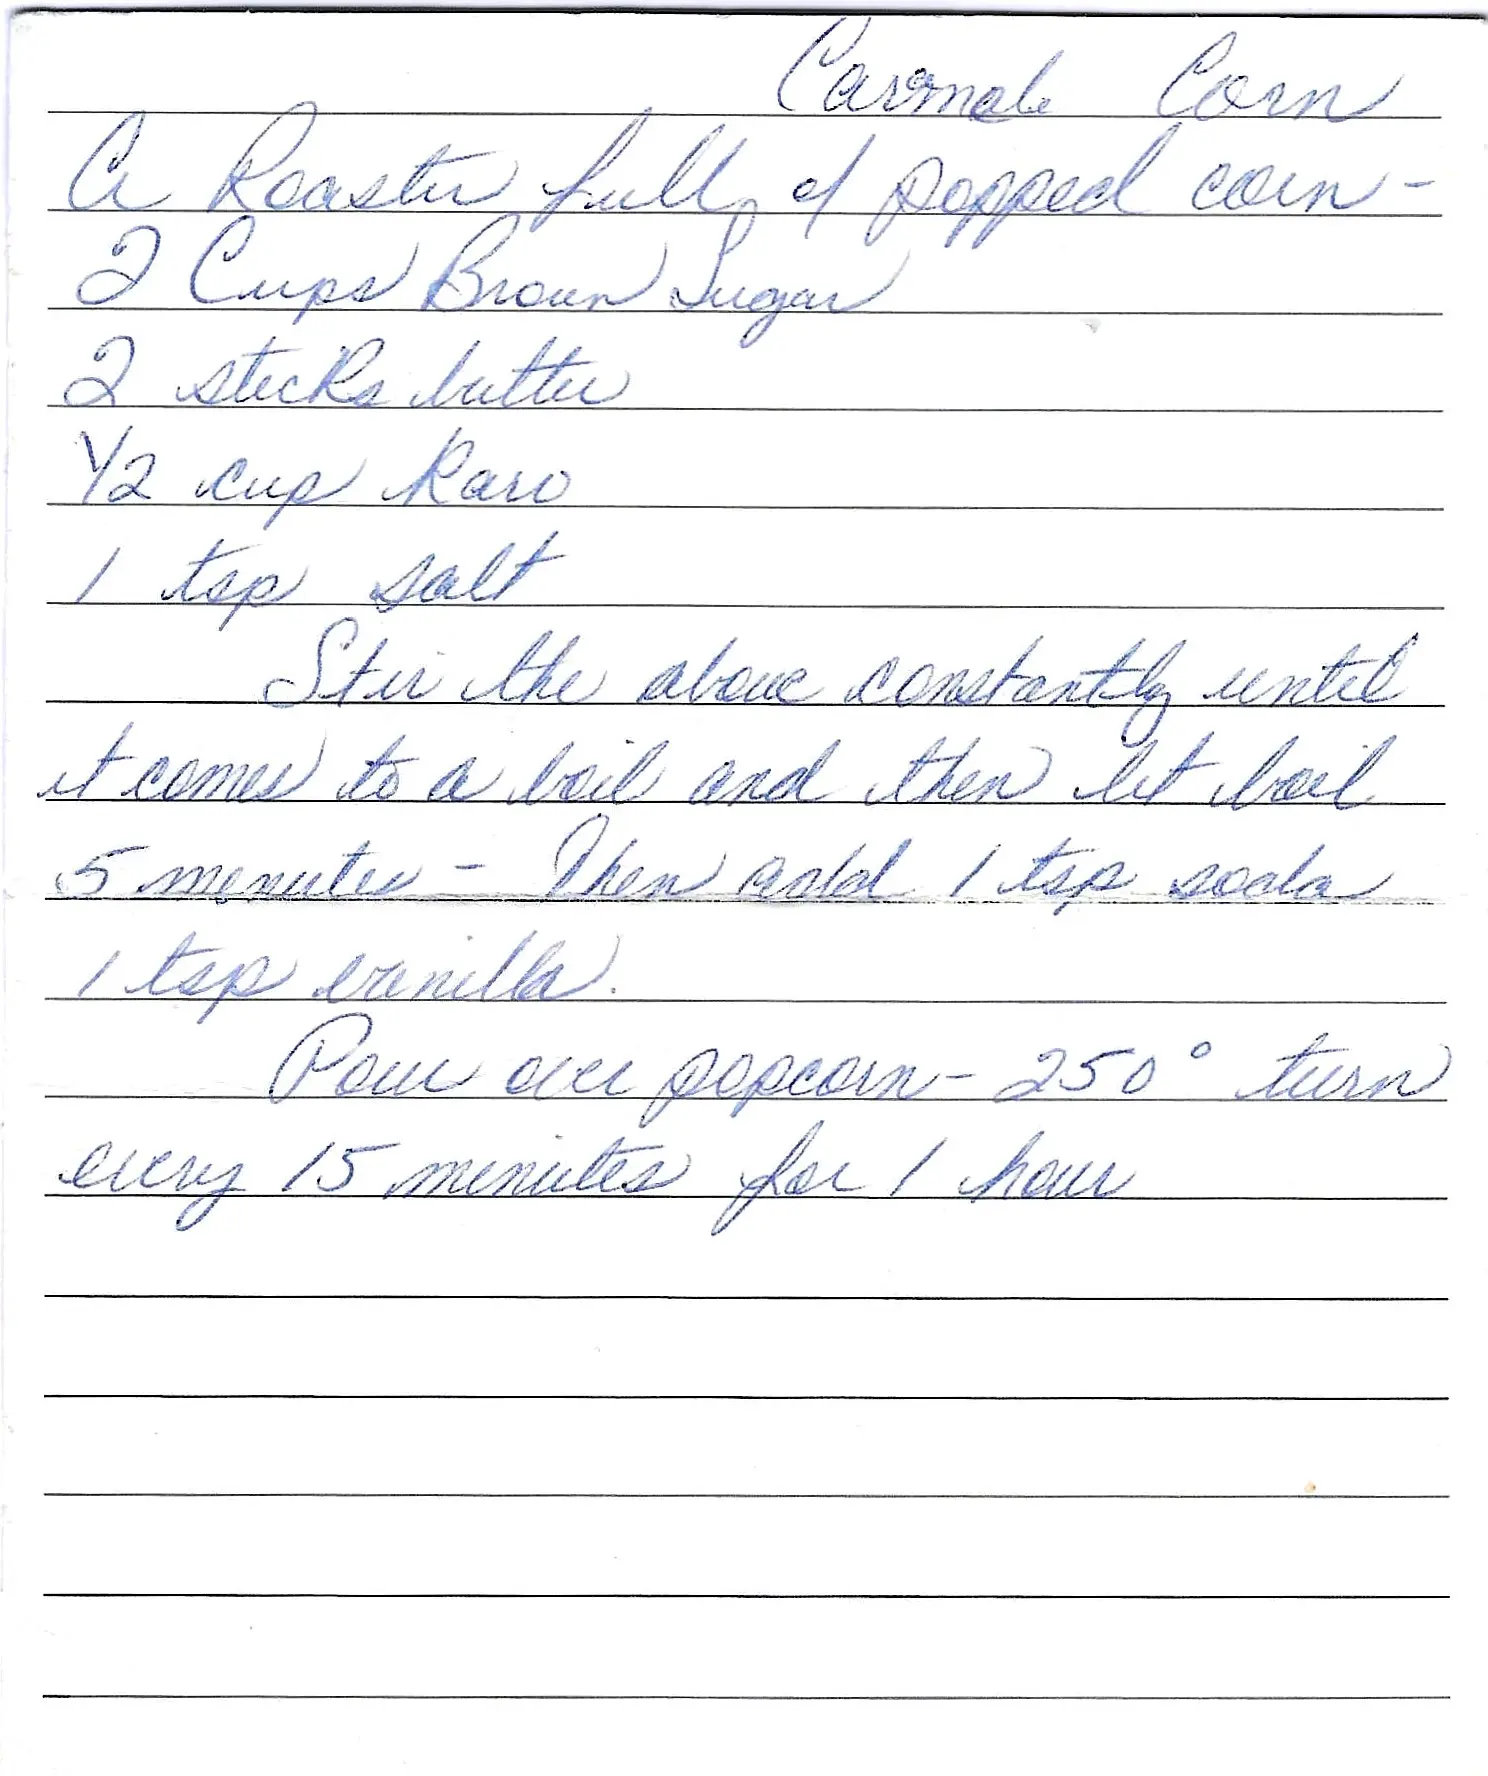 Carmale Corn
A Roaster full of popped corn -
2 Cups Brown Sugar
2 sticks butter
1/2 cup Karo
1 tsp salt
Stir the above constantly until
it comes to a boil and then let boil
5 minutes - Then add 1 tsp soda
1 tsp vanilla.
Pour over popcorn - 250° turn
every 15 minutes for 1 hour